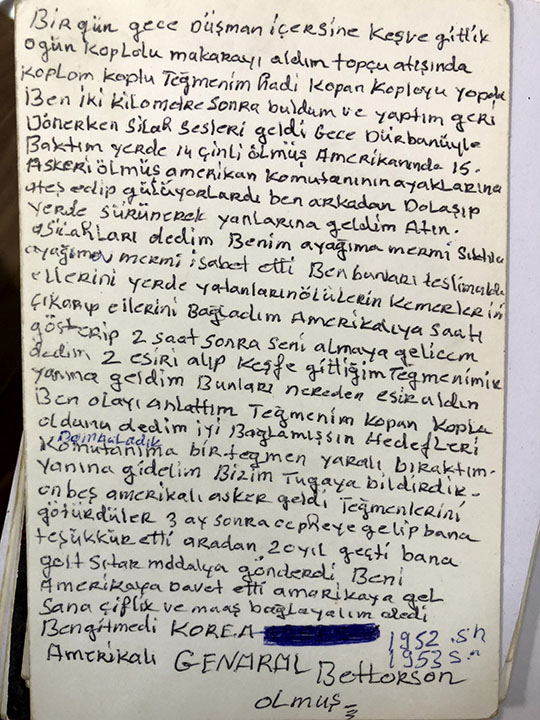 Bir gün gece Düşman içersine Keşve gittik
Ogün Koplolu makarayı aldım topçu atışında
koplom koptu Teğmenim Hadi Kopan Koployu yopala
Ben iki kilometre sonra buldum ve yaptım geri
Dönerken Silah sesleri geldi Gece Dürbünüyle
Baktım yerde 14 çinli ölmüş Amerikanında 15.
Askeri ölmüş amerikan komutanının ayaklarına
ateş edip gülüyorlardı ben arkadan Dolaşıp
yerde sürünerek yanlarına geldim Atın.
Silahları dedim Benim ayağıma mermi Sıktılar
ayağıma mermi isabet etti Ben bunları teslim aldım
ellerini yerde yatanların ölülerin Kemerlerini
çıkarıp ellerini Bağladım Amerikalıya Saati
gösterip 2 saat sonra seni almaya gelicem
dedim 2 esiri alıp Keşfe gittiğim Teğmenimin
yanına geldim Bunları nereden esir aldın
Ben olayı anlattım Teğmenim Kopan Koplo
oldumu dedim iyi Bağlamışsın Hedefleri
Bombaladık
Komutanıma bir teğmen yaralı bıraktım.
Yanına gidelim Bizim Tugaya bildirdik.
on beş amerikalı asker geldi Teğmenlerini
götürdüler 3 ay sonra cepheye gelip bana
teşükkür etti aradan 20 yıl geçti bana
golt Sıtar mddalya gönderdi Beni
Amerikaya Davet etti amarikaya gel
Sana çiflik ve maaş bağlayalım dedi
Ben gitmedi KOREA 1952.sn
1953 s.n
Amerikalı GENARAL Bettorson
olmuş